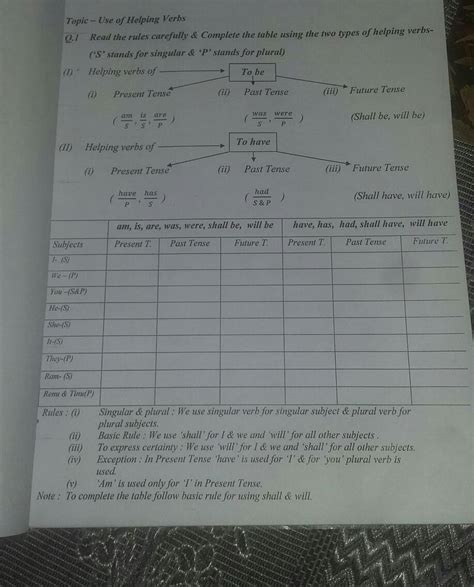 Topic – Use of Helping Verbs
Q.1 Read the rules carefully & Complete the table using the two types of helping verbs-
('S' stands for singular & 'P' stands for plural)
(I) Helping verbs of To be
(i) Present Tense (ii) Past Tense (iii) Future Tense
( am/S , is/S , are/P ) ( was/S , were/P ) (Shall be, will be)
(II) Helping verbs of To have
(i) Present Tense (ii) Past Tense (iii) Future Tense
( have/P , has/S ) ( had/S & P ) (Shall have, will have)
am, is, are, was, were, shall be, will be have, has, had, shall have, will have
Subjects Present T. Past Tense Future T. Present T. Past Tense Future T.
I- (S)
We – (P)
You –(S&P)
He-(S)
She-(S)
It-(S)
They-(P)
Ram- (S)
Renu & Tinu(P)
Rules : (i) Singular & plural : We use singular verb for singular subject & plural verb for
plural subjects.
(ii) Basic Rule : We use 'shall' for I & we and 'will' for all other subjects .
(iii) To express certainty : We use 'will' for I & we and 'shall' for all other subjects.
(iv) Exception : In Present Tense 'have' is used for 'I' & for 'you' plural verb is
used.
(v) 'Am' is used only for 'I' in Present Tense.
Note : To complete the table follow basic rule for using shall & will.